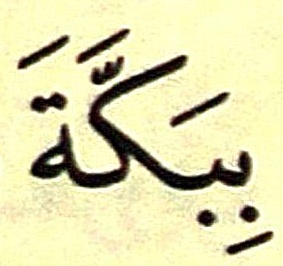 بِبَكَّةَ